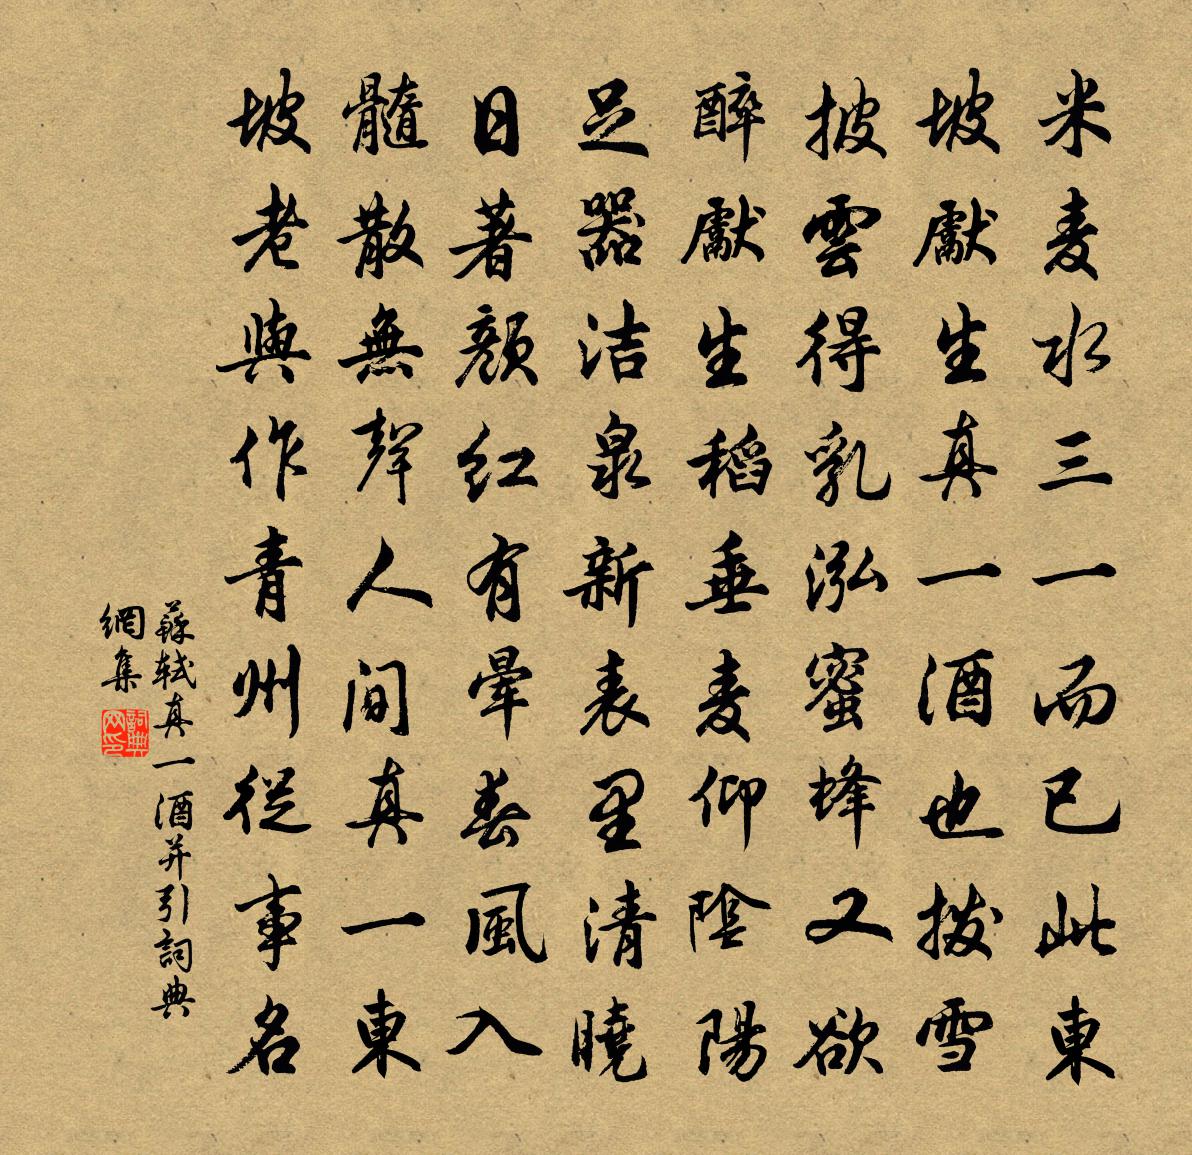 米麦水三一而已此東
坡獻生真一酒也拨雪
披雲得乳泓蜜蜂又欲
醉獻生稻垂麦仰陰陽
足器洁泉新表里清曉
日著颜红有暈春風入
髓散無聲人间真一東
坡老與作青州從事名
蘇軾真一酒并引詞典
網集
詞典
网印